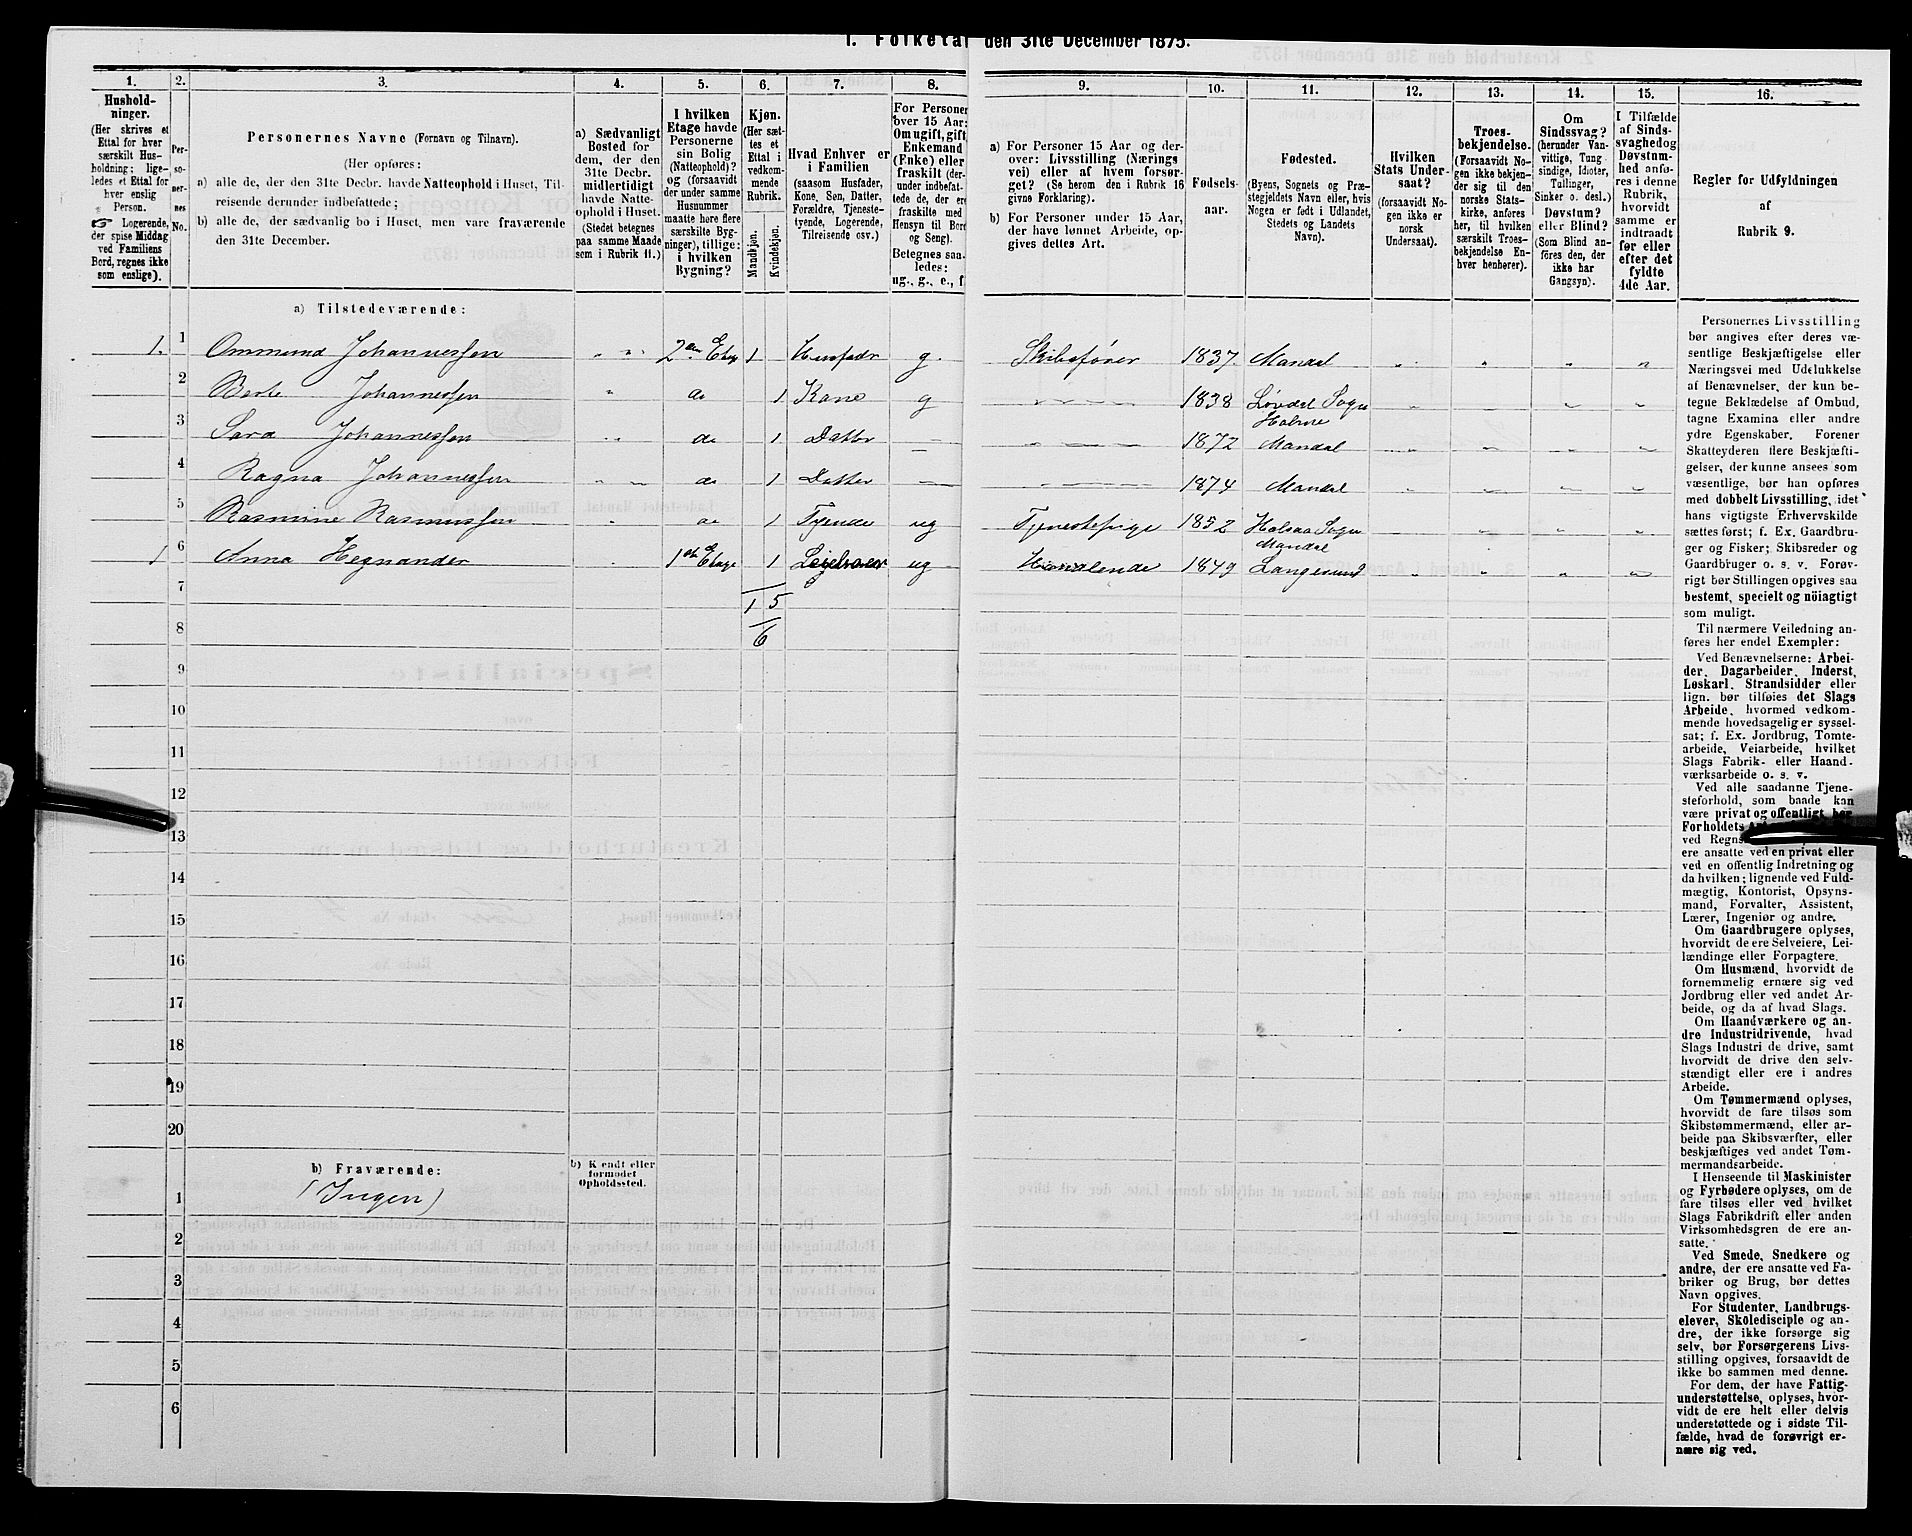 1. Folketal den 31te December 1875.
1. 2. 3. 4. 5. 6. 7. 8. 9. 10. 11. 12. 13. 14. 15. 16.
Hushold-
ninger.
(Her skrives et
Ettal for hver
særskilt Hus-
holdning; lige-
ledes et Ettal for
hver enslig
Person.
☞ Logerende,
der spise Middag
ved Familiens
Bord, regnes ikke
som enslige).
Per-
so-
ner-
nes
No.
Personernes Navne (Fornavn og Tilnavn).
(Her opføres:
a) alle de, der den 31te Decbr. havde Natteophold i Huset, Til-
reisende derunder indbefattede;
b) alle de, der sædvanlig bo i Huset, men vare fraværende
den 31te December.
a) Sædvanligt
Bosted for
dem, der den
31te Decbr.
midlertidigt
havde Natte-
ophold i Huset.
(Stedet betegnes
paa samme Maade
som i Rubrik 11.)
I hvilken
Etage havde
Personerne
sin Bolig
(Natteophold)?
og (forsaavidt
der under samme
Husnummer
maatte høre flere
særskilte Byg-
ninger), tillige:
i hvilken
Bygning?
Kjøn.
(Her sæt-
tes et
Ettal i
vedkom-
mende
Rubrik.
Mandkjøn.
Kvindekjøn.
Hvad Enhver er
i Familien
(saasom Husfader,
Kone, Søn, Datter,
Forældre, Tjeneste-
tyende, Logerende,
Tilreisende osv.)
For Personer
over 15 Aar:
Om ugift, gift,
Enkemand
(Enke) eller
fraskilt (der-
under indbefat-
tede de, der ere
fraskilte med
Hensyn til Bord
og Seng).
Betegnes saa-
ledes:
ug., g., e., f.
a) For Personer 15 Aar og der-
over: Livsstilling (Nærings
vei) eller af hvem forsør-
get? (Se herom den i Rubrik 16
givne Forklaring).
b) For Personer under 15 Aar,
der have lønnet Arbeide, op-
gives dettes Art.
Fødsels-
aar.
Fødested.
(Byens, Sognets og Præ-
stegjeldets Navn eller, hvis
Nogen er født i Udlandet,
Stedets og Landets
Navn).
Hvilken
Stats Under-
saat?
(forsaavidt No-
gen ikke er
norsk
Undersaat).
Troes-
bekjendelse.
(Forsaavidt No-
gen ikke bekjen-
der sig til den
norske Stats-
kirke, anføres
her, til hvilken
særskilt Troes-
bekjendelse En-
hver henhører).
Om
Sindssvag?
(herunder Van-
vittige, Tung-
sindige, Idioter,
Tullinger,
Sinker o. desl.)
Døvstum?
eller Blind?
(Som Blind an-
føres den, der
ikke har
Gangsyn).
I Tilfælde
af Sinds-
svaghed og
Døvstum-
hed anfø-
res i denne
Rubrik,
hvorvidt
samme er
indtraadt
før eller
efter det
fyldte
4de Aar.
Regler for Udfyldningen
af
Rubrik 9.
a) Tilstedeværende:
1. 1 Ommund Johannessen " " " 2den Etag 1 Husfader g. Skibsfører 1837. Mandal " " " "
2 Berte Johannessen " do 1 Kone g " 1838 Løvdal Sogn Holme " " " "
3 Sara Johannessen " " do 1 Datter — " 1872 Mandal " " " "
4 Ragna Johannessen " " do 1 Datter — " 1874 Mandal " " " "
5 Rasmine Rasmussen " do 1 Tyende ug Tjenestepige 1852 Halsaa Sogn Mandal " " " "
1 6 Anna Hegnander 1ste Etage 1 ug Handlende 1849 Langesund " " " "
7 1 5
8 6
9
10
11
12
13
14
15
16
17
18
19
20
b) Fraværende:
b) Kjendt eller
formodet
Opholdssted.
1 (Ingen)
2
3
4
5
6
Personernes Livsstilling
bør angives efter deres væ-
sentlige Beskjæftigelse eller
Næringsvei med Udelukkelse
af Benævnelser, der kun be-
tegne Beklædelse af Ombud,
tagne Examina eller andre
ydre Egenskaber. Forener
Skatteyderen flere Beskjæfti-
gelser, der kunne ansees som
væsentlige, bør han opføres
med dobbelt Livsstilling, idet
hans vigtigste Erhvervskilde
sættes først; f. Ex. Gaardbru-
ger og Fisker; Skibsreder og
Gaardbruger o. s. v. Forøv-
rigt bør Stillingen opgives saa
bestemt, specielt og nöiagtigt
som muligt.
Til nærmere Veiledning an-
føres her endel Exempler:
Ved Benævnelserne: Arbei-
der, Dagarbeider, Inderst,
Løskarl, Strandsidder eller
lign. bør tilføies det Slags
Arbeide, hvormed vedkom-
mende hovedsagelig er syssel-
sat; f. Ex. Jordbrug, Tomte-
arbeide, Veiarbeide, hvilket
Slags Fabrik- eller Haand-
værksarbeide o. s. v.
Ved alle saadanne Tjene-
steforhold, som baade kan
være privat og offentligt, bør
Forholdets
ved Regn
ere ansatte ved en privat eller
ved en offentlig Indretning og
da hvilken; lignende ved Fuld-
mægtig, Kontorist, Opsyns-
mand, Forvalter, Assistent,
Lærer, Ingeniør og andre.
Om Gaardbrugere oplyses,
hvorvidt de ere Selveiere, Lei-
lændinge eller Forpagtere.
Om Husmænd, hvorvidt de
fornemmelig ernære sig ved
Jordbrug eller ved andet Ar-
beide, og da af hvad Slags.
Om Haandværkere og an-
dre Industridrivende, hvad
Slags Industri de drive, samt
hvorvidt de drive den selv-
stændigt eller ere i andres
Arbeide.
Om Tømmermænd oplyses,
hvorvidt de fare tilsøs som
Skibstømmermænd, eller ar-
beide paa Skibsværfter, eller
beskjæftiges ved andet Tøm-
mermandsarbeide.
I Henseende til Maskinister
og Fyrbødere oplyses, om de
fare tilsøs eller ved hvilket
Slags Fabrikdrift eller anden
Virksomhedsgren de ere an-
satte.
Ved Smede, Snedkere og
andre, der ere ansatte ved Fa-
briker og Brug, bør dettes
Navn opgives.
For Studenter, Landbrugs-
elever, Skoledisciple og an-
dre, der ikke forsørge sig
selv, bør Forsørgerens Livs-
stilling opgives, forsaavidt de
ikke bo sammen med denne.
For dem, der have Fattig-
understøttelse, oplyses, hvor-
vidt de ere helt eller delvis
understøttede og i sidste Til-
fælde, hvad de forøvrigt er-
nære sig ved.